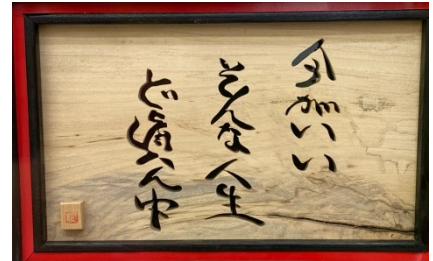 今がいい
そんな人生
ど真ん中